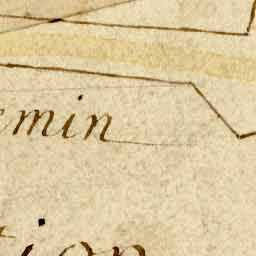 emin
tion